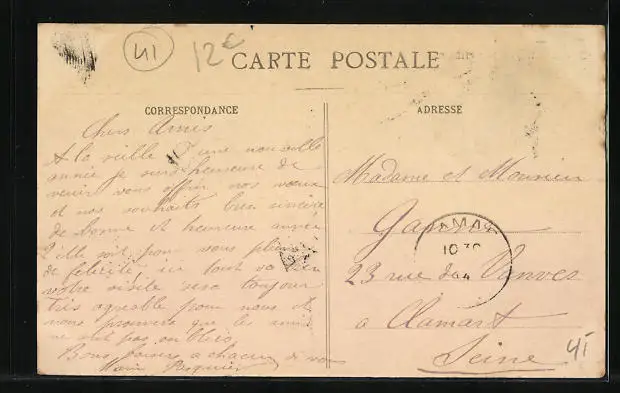 41
12€
CARTE POSTALE
CORRESPONDANCE
ADRESSE
Chers Amis
A la veille d'une nouvelle
année je suis heureuse de
venir vous offrir nos vœux
et nos souhaits bien sincère
de bonne et heureuse année
qu'elle soit pour vous pleine
de félicité, ici tout va bien
votre visite sera toujour
très agréable pour nous et
nous prouvera que les amis
ne sont pas oubliés
Bons baisers a chacun de vous
Marie
Madame et Monsieur
23 rue de Vanves
a Clamart
Seine
CLAMART
10 30
41